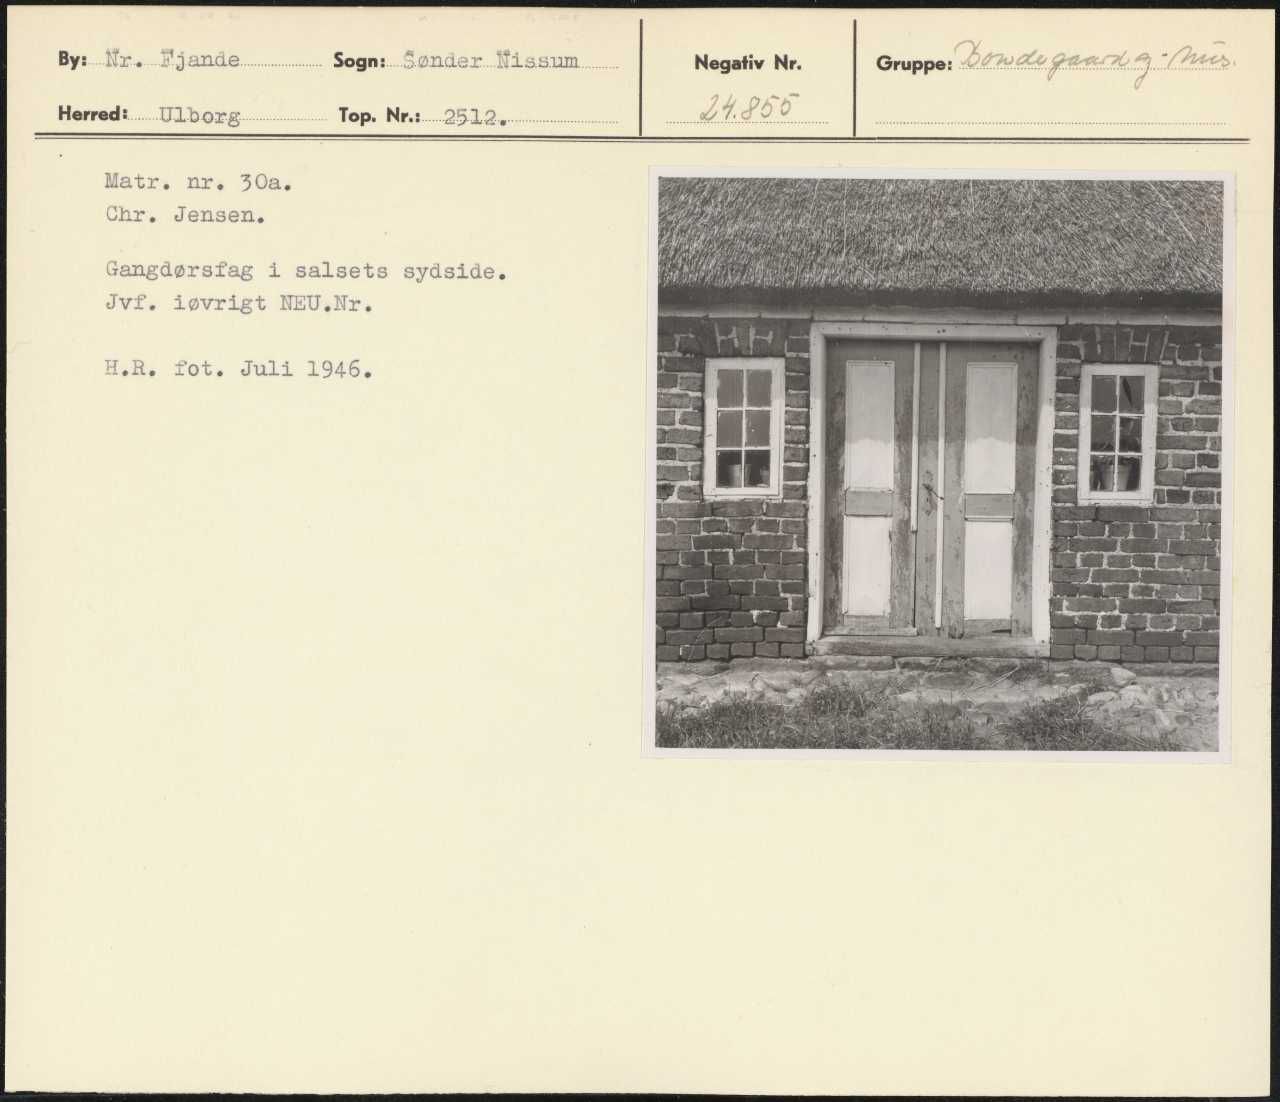 By: Nr. Fjande Sogn: Sønder Nissum Negativ Nr. Gruppe: Bondegaard og -hus.
Herred: Ulborg Top. Nr.: 2512. 24.855
Matr. nr. 30a.
Chr. Jensen.
Gangdørsfag i salsets sydside.
Jvf. iøvrigt NEU.Nr.
H.R. fot. Juli 1946.